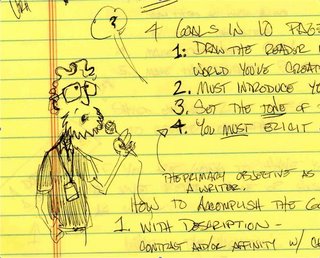 4 GOALS IN 10 PAGE
1: DRAW THE READER I
WORLD YOU'VE CREAT
2. MUST INTRODUCE YO
3. SET THE TONE OF
4. YOU MUST ELICIT
THE PRIMARY OBJECTIVE AS
A WRITER.
HOW TO ACCOMPLISH THE GO
1. WITH DESCRIPTION -
CONTRAST AND/OR AFFINITY W/